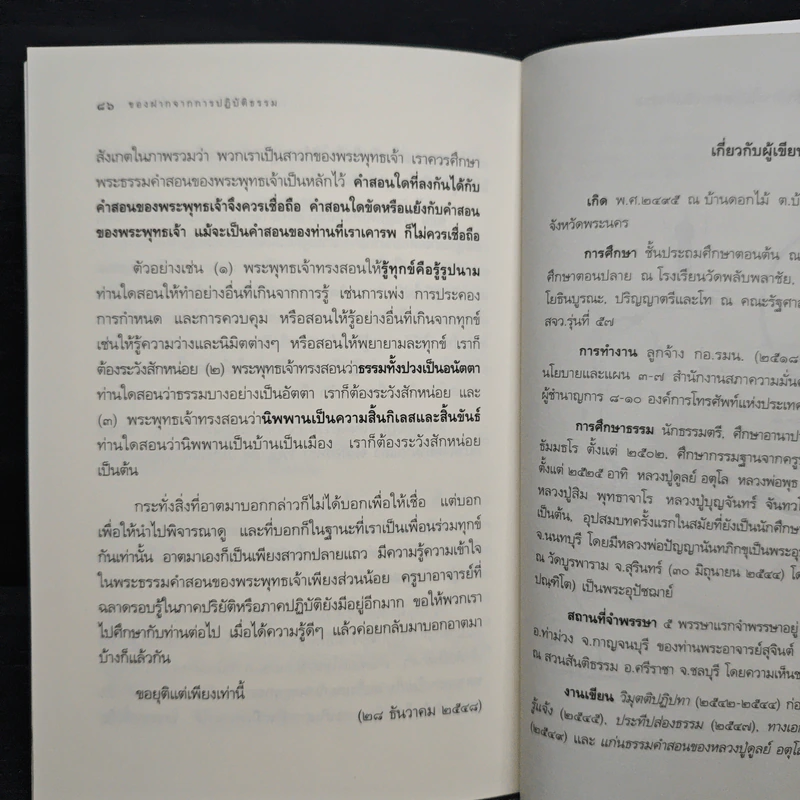 ๘๖ ของฝากจากการปฏิบัติธรรม
สังเกตในภาพรวมว่า พวกเราเป็นสาวกของพระพุทธเจ้า เราควรศึกษา
พระธรรมคำสอนของพระพุทธเจ้าเป็นหลักไว้ คำสอนใดที่ลงกันได้กับ
คำสอนของพระพุทธเจ้าจึงควรเชื่อถือ คำสอนใดขัดหรือแย้งกับคำสอน
ของพระพุทธเจ้า แม้จะเป็นคำสอนของท่านที่เราเคารพ ก็ไม่ควรเชื่อถือ
ตัวอย่างเช่น (๑) พระพุทธเจ้าทรงสอนให้รู้ทุกข์คือรู้รูปนาม
ท่านใดสอนให้ทำอย่างอื่นที่เกินจากการรู้ เช่นการเพ่ง การประคอง
การกำหนด และการควบคุม หรือสอนให้รู้อย่างอื่นที่เกินจากทุกข์
เช่นให้รู้ความว่างและนิมิตต่างๆ หรือสอนให้พยายามละทุกข์ เราก็
ต้องระวังสักหน่อย (๒) พระพุทธเจ้าทรงสอนว่าธรรมทั้งปวงเป็นอนัตตา
ท่านใดสอนว่าธรรมบางอย่างเป็นอัตตา เราก็ต้องระวังสักหน่อย และ
(๓) พระพุทธเจ้าทรงสอนว่านิพพานเป็นความสิ้นกิเลสและสิ้นขันธ์
ท่านใดสอนว่านิพพานเป็นบ้านเป็นเมือง เราก็ต้องระวังสักหน่อย
เป็นต้น
กระทั่งสิ่งที่อาตมาบอกกล่าวก็ไม่ได้บอกเพื่อให้เชื่อ แต่บอก
เพื่อให้นำไปพิจารณาดู และที่บอกก็ในฐานะที่เราเป็นเพื่อนร่วมทุกข์
กันเท่านั้น อาตมาเองก็เป็นเพียงสาวกปลายแถว มีความรู้ความเข้าใจ
ในพระธรรมคำสอนของพระพุทธเจ้าเพียงส่วนน้อย ครูบาอาจารย์ที่
ฉลาดรอบรู้ในภาคปริยัติหรือภาคปฏิบัติยังมีอยู่อีกมาก ขอให้พวกเรา
ไปศึกษากับท่านต่อไป เมื่อได้ความรู้ดีๆ แล้วค่อยกลับมาบอกอาตมา
บ้างก็แล้วกัน
ขอยุติแต่เพียงเท่านี้
(๒๘ ธันวาคม ๒๕๔๘)
เกี่ยวกับผู้เขียน
เกิด พ.ศ.๒๔๙๕ ณ บ้านดอกไม้ ต.บ้
จังหวัดพระนคร
การศึกษา ชั้นประถมศึกษาตอนต้น ณ
ศึกษาตอนปลาย ณ โรงเรียนวัดพลับพลาชัย,
โยธินบูรณะ, ปริญญาตรีและโท ณ คณะรัฐศา
สจว.รุ่นที่ ๕๗
การทำงาน ลูกจ้าง กอ.รมน. (๒๕๑๘
นโยบายและแผน ๓-๗ สำนักงานสภาความมั่นค
ผู้ชำนาญการ ๘-๑๐ องค์การโทรศัพท์แห่งประเทศ
การศึกษาธรรม นักธรรมตรี, ศึกษาอานาปา
ธัมมธโร ตั้งแต่ ๒๕๐๒, ศึกษากรรมฐานจากครู
ตั้งแต่ ๒๕๒๕ อาทิ หลวงปู่ดูลย์ อตุโล หลวงพ่อพุธ
หลวงปู่สิม พุทธาจาโร หลวงปู่บุญจันทร์ จันทวโ
เป็นต้น, อุปสมบทครั้งแรกในสมัยที่ยังเป็นนักศึกษา
จ.นนทบุรี โดยมีหลวงพ่อปัญญานันทภิกขุเป็นพระอุ
ณ วัดบูรพาราม จ.สุรินทร์ (๓๐ มิถุนายน ๒๕๔๔) โด
ปณฺฑิโต) เป็นพระอุปัชฌาย์
สถานที่จำพรรษา ๕ พรรษาแรกจำพรรษาอยู่
อ.ท่าม่วง จ.กาญจนบุรี ของท่านพระอาจารย์สุจินต์
ณ สวนสันติธรรม อ.ศรีราชา จ.ชลบุรี โดยความเห็นช
งานเขียน วิมุตติปฏิปทา (๒๕๔๒-๒๕๔๔) ก่อ
รู้แจ้ง (๒๕๔๕), ประทีปส่องธรรม (๒๕๔๗), ทางเอก
(๒๕๔๙) และ แก่นธรรมคำสอนของหลวงปู่ดูลย์ อตุโล